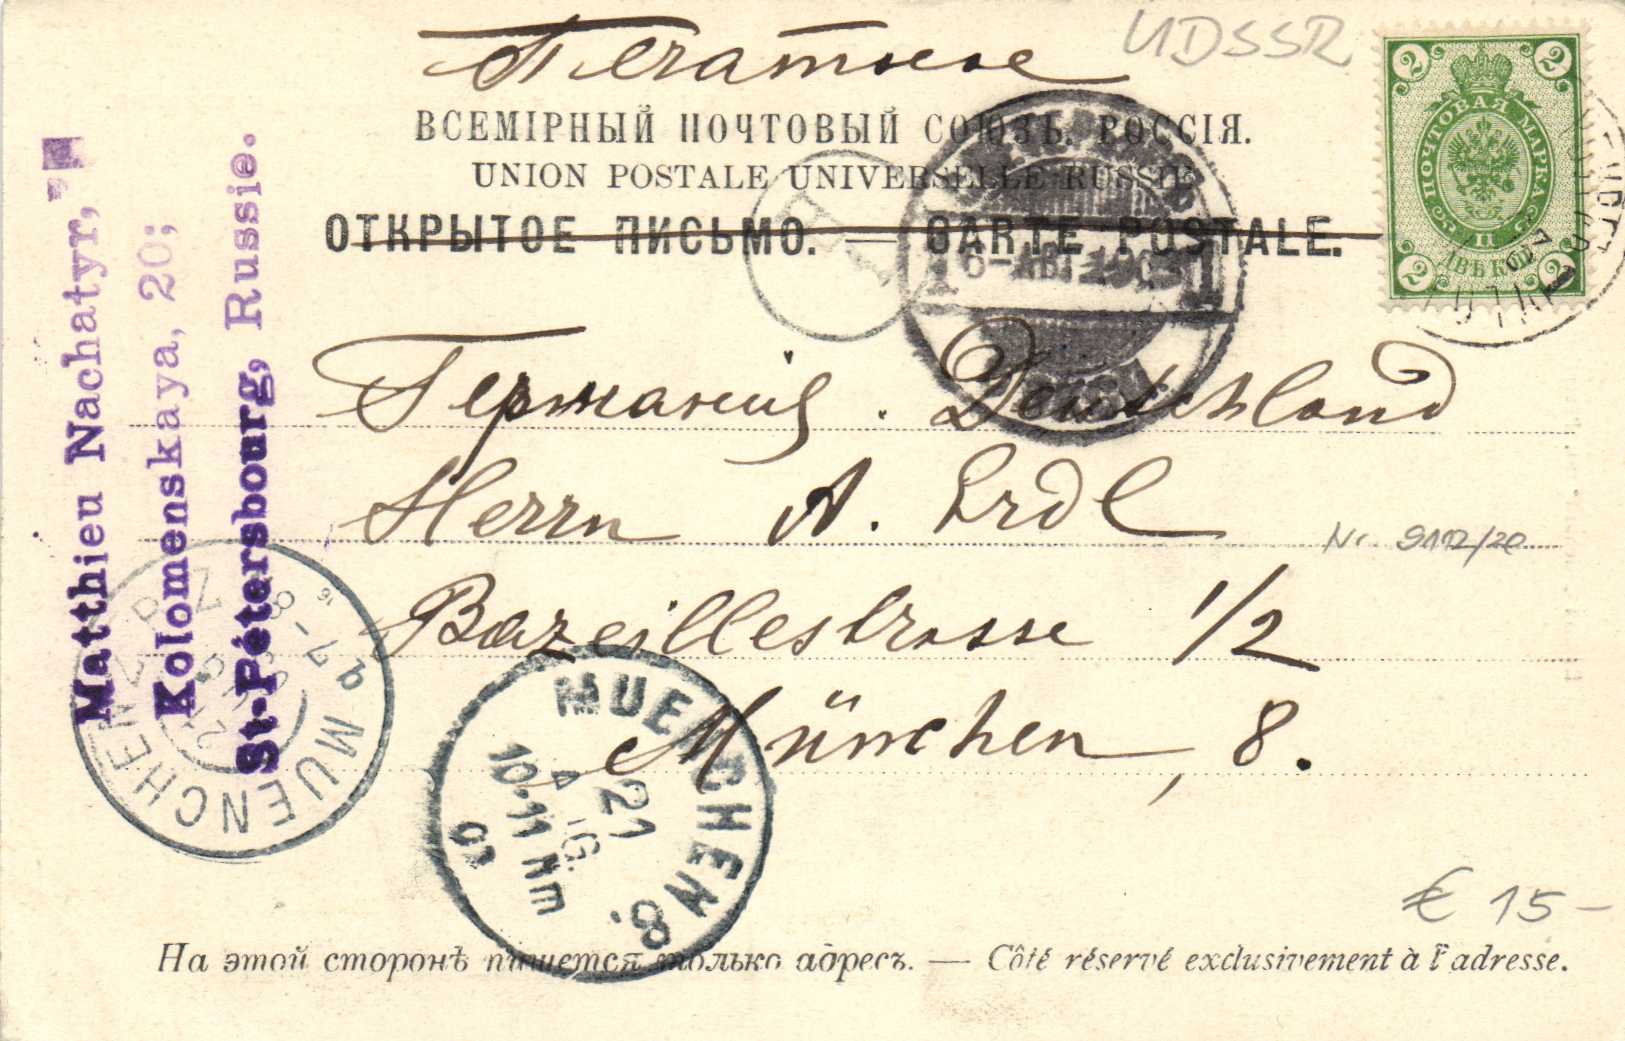 Печатное
UDSSR
ВСЕМІРНЫЙ ПОЧТОВЫЙ СОЮЗЪ. РОССІЯ.
UNION POSTALE UNIVERSELLE RUSSIE
ОТКРЫТОЕ ПИСЬМО. — CARTE POSTALE.
2 2
ПОЧТОВАЯ МАРКА
II
ДВѢ КОП.
2 2
6-АВГ 1903
1 1
Matthieu Nachatyr,
Kolomenskaya, 20;
St-Pétersbourg, Russie.
Германія. Deutschland
Herrn A. Erdl
Nr. 9112/20
Bazeillestrasse 1/2
München, 8.
MUENCHEN
8-9
MUENCHEN 8.
21
10-11 Nm
€ 15-
На этой сторонѣ пишется только адресъ. — Côté réservé exclusivement à l'adresse.